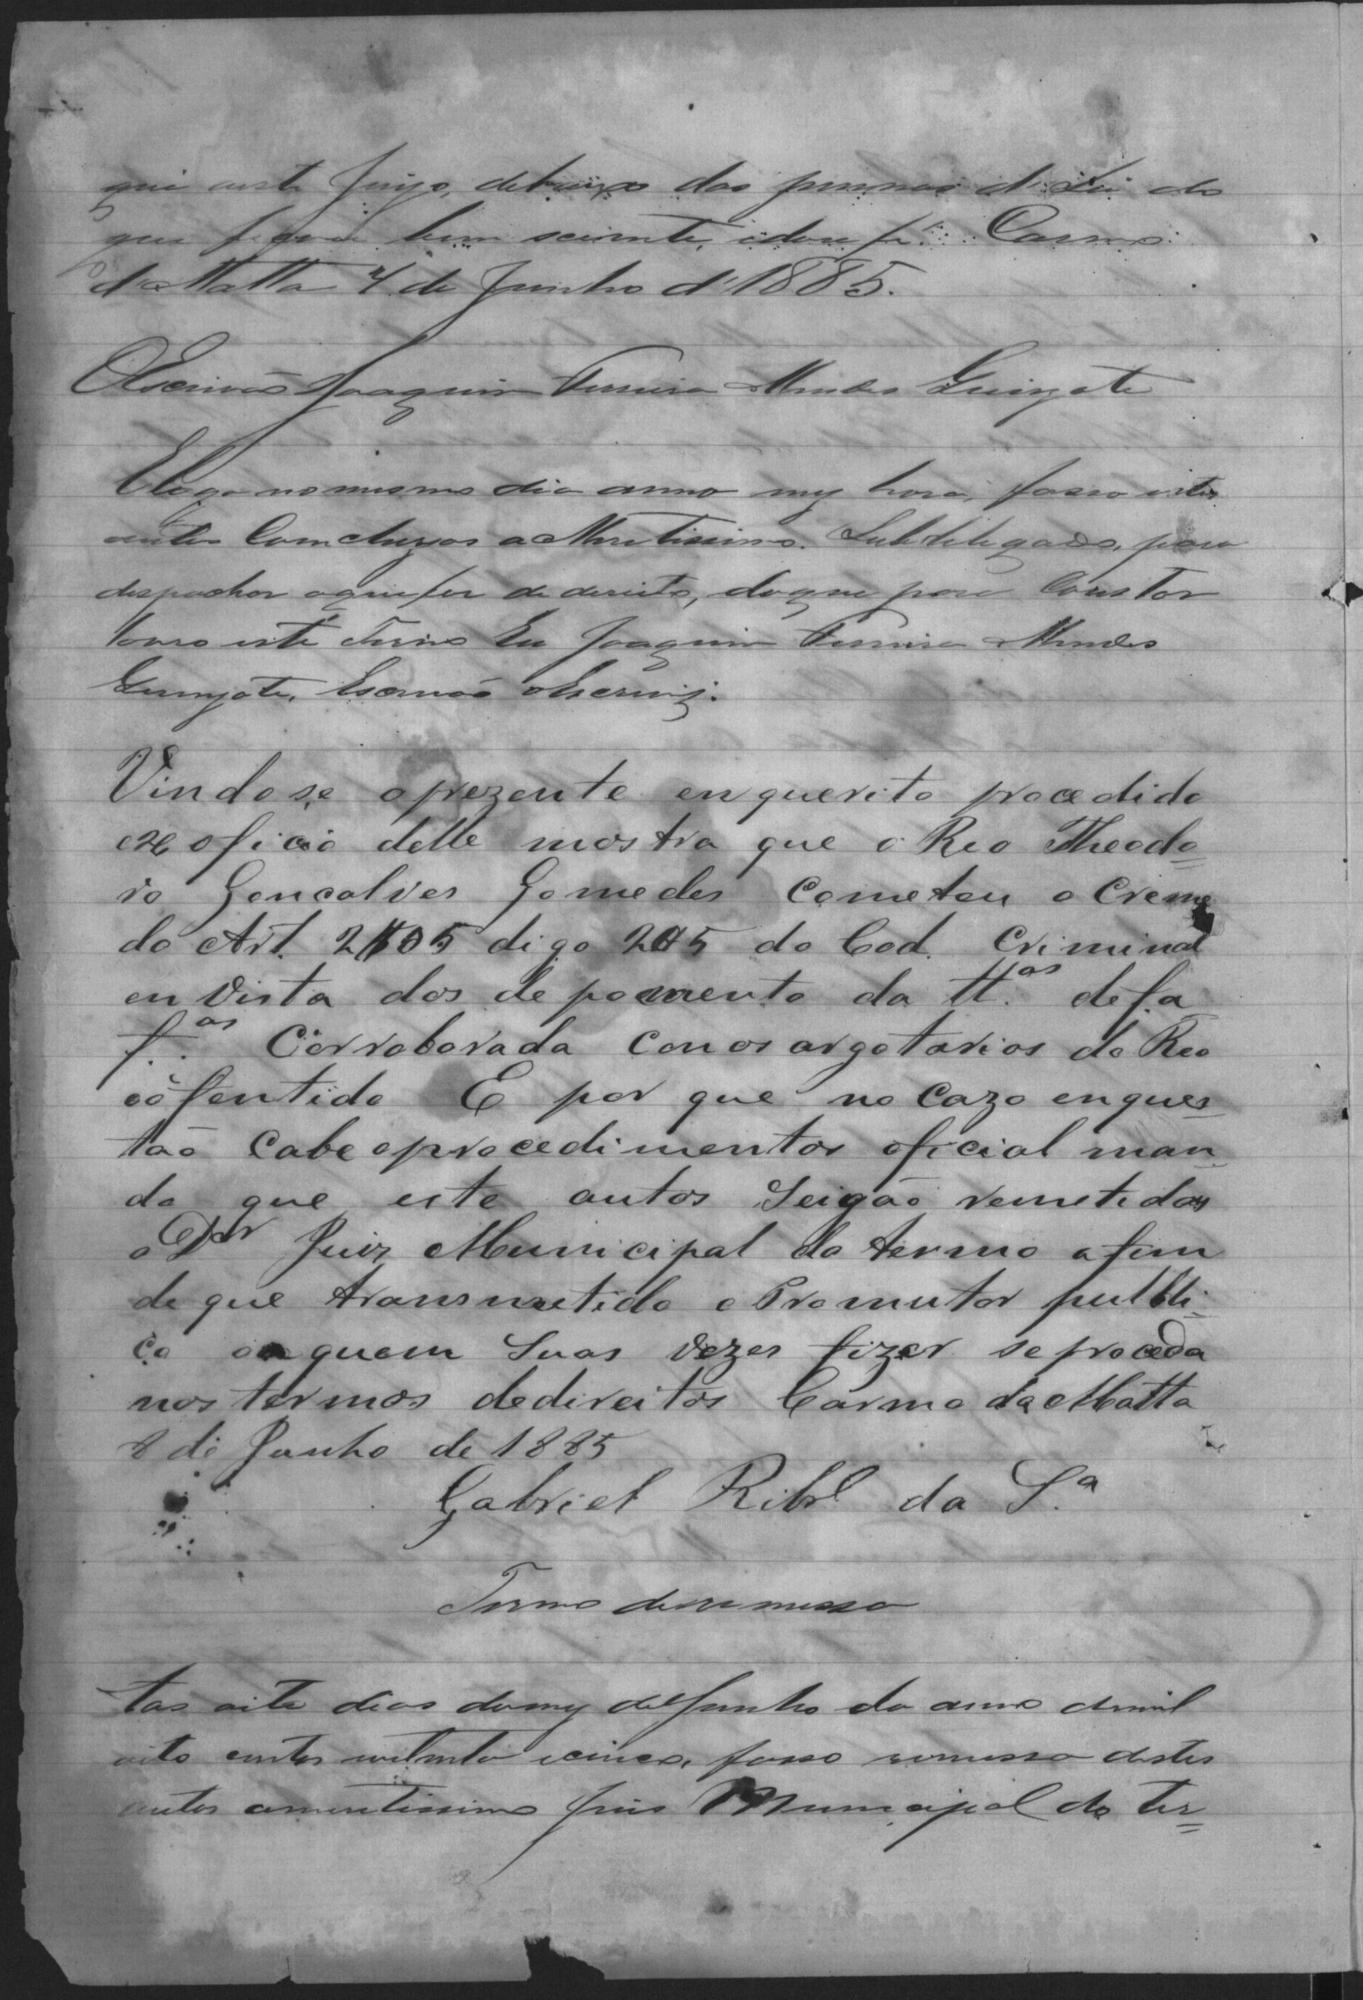 que neste Juizo, debaixo das pennas da Lei do
que ficou bem sciente, e dou fé. Carmo
da Matta 4 de Junho d'1885.
O Escrivão Joaquim Ferreira Mendes Guingate
E logo no mesmo dia anno mez hora, fasso estes
autos Comcluzos ao Meretissimo. Subdelegado, para
despachar o que for de dereito, do que para Constar
lavro este Termo Eu Joaquim Ferreira Mendes
Guingate, Escrivão o Escrevi.
Vindose o prezente enquerito procedido
ex oficio delle mostra que o Reo Theodo=
ro Goncalves Gomedes Cometeu o Creme
do Art. 2105 digo 205 do Cod. Criminal
en vista dos depoimento da tt.as defa
f.as Corroborada con os
do Reo
E por que no cazo enques=
tão Cabe o procedimentos oficial man
do que este autos Seigão remetidos
o Dor Juiz Municipal do termo afim
de que transmetido o Promutor pubbli-
co ou quem Suas vezes fizer se proceda
nos termos de direitos Carmo da Matta
8 de Junho de 1885
Gabriel Ribr.o da S.a
Termo de remessa
Aos oito dias do mez de Junho do anno de mil
oito centos e oitenta e cinco, fasso remessa destes
autos ao meretissimo Juis Municipal do ter=